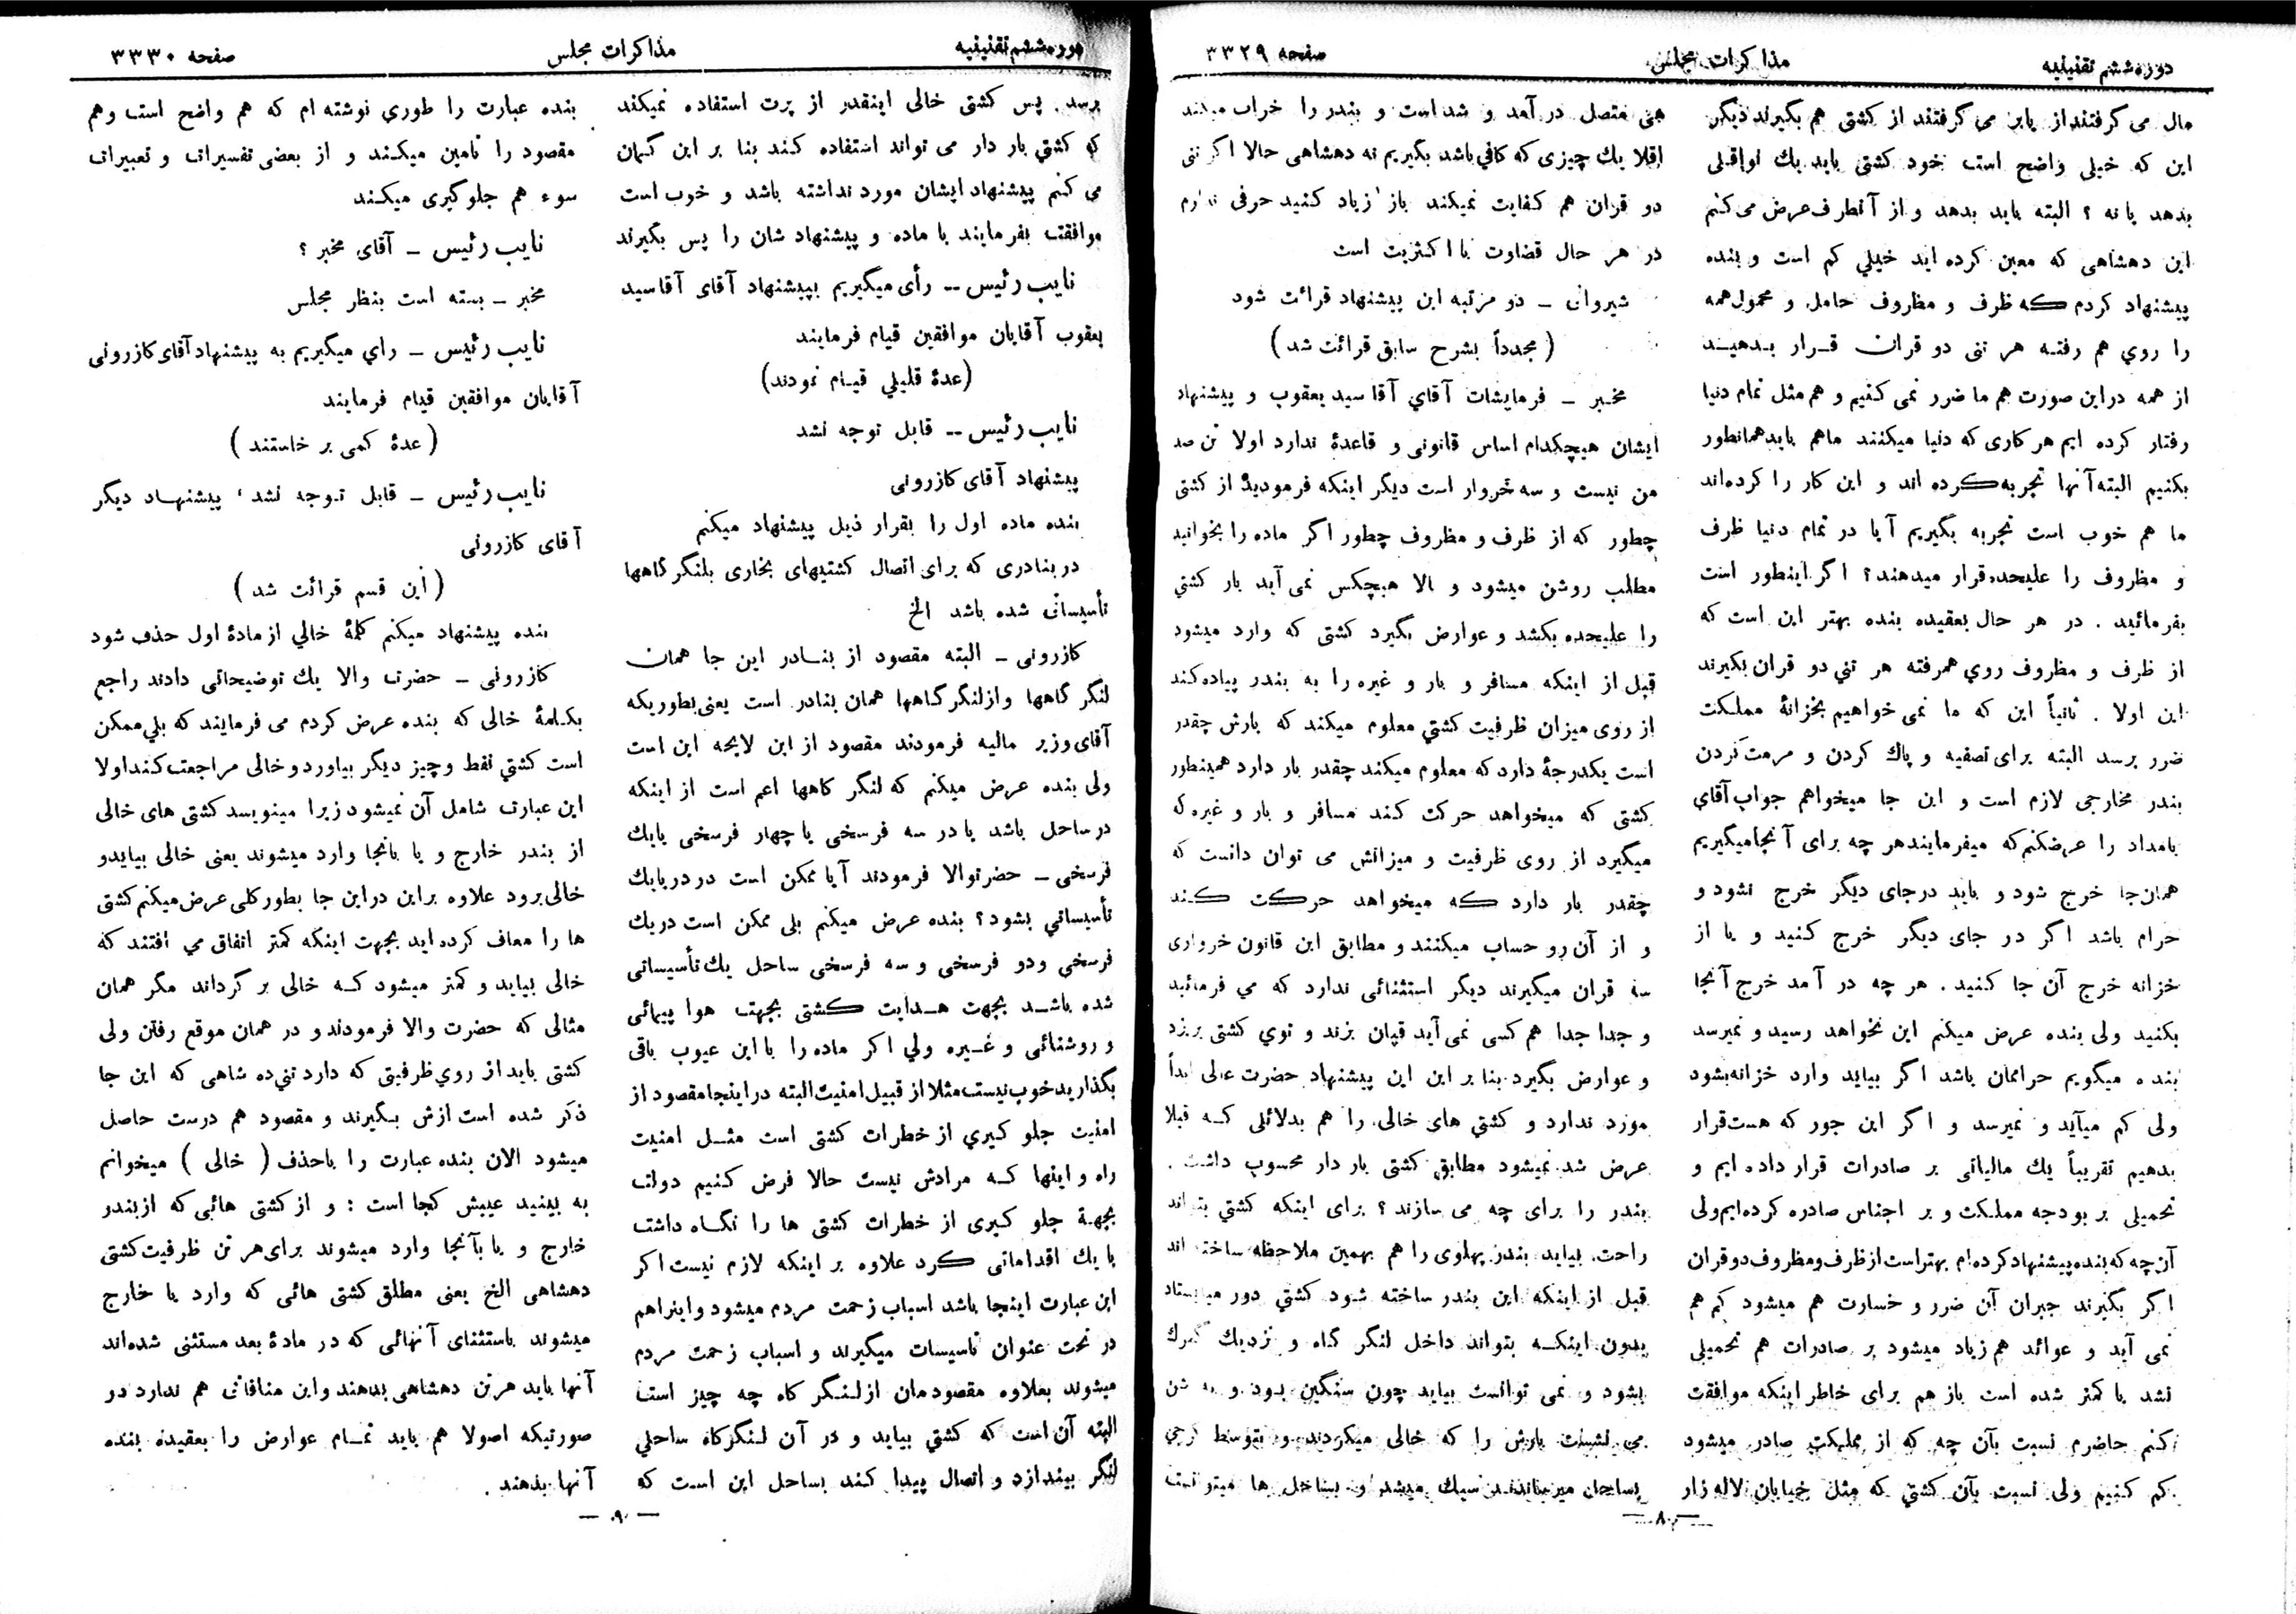 دوره ششم تقنینیه
مذاکرات مجلس
صفحه ۳۳۲۹
مال می گرفتند از یابر می گرفتند از کشتی هم بگیرند دیگر
این که خیلی واضح است خود کشتی باید یك نواقلی
بدهد یا نه ؟ البته باید بدهد و از آنطرف عرض می کنم
این دهشاهی که معین کرده اید خیلي کم است و بنده
پیشنهاد کردم که ظرف و مظروف حامل و محمول همه
را روي هم رفته هر تنی دو قران قرار بدهیند
از همه دراین صورت هم ما ضرر نمی کنیم و هم مثل تمام دنیا
رفتار کرده ایم هر کاری که دنیا میکنند ماهم باید همانطور
بکنیم البته آنها تجربه کرده اند و این کار را کرده‌اند
ما هم خوب است تجربه بگیریم آیا در تمام دنیا ظرف
و مظروف را علیحده قرار میدهند؟ اگر اینطور است
بفرمائید . در هر حال بعقیده بنده بهتر این است که
از ظرف و مظروف روي همرفته هر تني دو قران بگیرند
این اولا . ثانیاً این که ما نمی خواهیم بخزانهٔ مملکت
ضرر برسد البته برای تصفیه و پاك کردن و مرمت کردن
بندر مخارجی لازم است و این جا میخواهم جواب آقای
بامداد را عرض‌کنم که میفرمایند هر چه برای آنجا میگیریم
همان‌جا خرج شود و باید درجای دیگر خرج نشود و
حرام باشد اگر در جای دیگر خرج کنید و یا از
خزانه خرج آن جا کنید . هر چه در آمد خرج آنجا
بکنید ولی بنده عرض میکنم این نخواهد رسید و نمیرسد
بنده میگویم حرامان باشد اگر بیاید وارد خزانه بشود
ولی کم میآید و نمیرسد و اگر این جور که هست قرار
بدهیم تقریباً یك مالیاتی بر صادرات قرار داده ایم و
تحمیلی بر بودجه مملکت و بر اجناس صادره کرده‌ایم ولی
آن چه که بنده پیشنهاد کرده‌ام بهتر است از ظرف و مظروف دو قران
اگر بگیرند جبران آن ضرر و خسارت هم میشود کم هم
نمی آید و عوائد هم زیاد میشود بر صادرات هم تحمیلی
نشد یا کمتر شده است باز هم برای خاطر اینکه موافقت
کنم حاضرم نسبت بآن چه که از مملکت صادر میشود
کم کنیم ولی نسبت بآن کشتي که مثل خیابان لاله زار
هی متصل در آمد و شد است و بندر را خراب میکند
اقلا یك چیزی که کافي باشد بگیریم نه دهشاهی حالا اگر تنی
دو قران هم کفایت نمیکند باز زیاد کنید حرفی ندارم
در هر حال قضاوت با اکثریت است
شیروانی ـ دو مرتبه این پیشنهاد قرائت شود
( مجدداً بشرح سابق قرائت شد )
مخبر ـ فرمایشات آقاي آقا سید یعقوب و پیشنهاد
ایشان هیچکدام اساس قانونی و قاعدهٔ ندارد اولا تن صد
من نیست و سه خروار است دیگر اینکه فرمودید از کشتي
چطور که از ظرف و مظروف چطور اگر ماده را بخوانید
مطلب روشن میشود و الا هیچکس نمی آید بار کشتي
را علیحده بکشد و عوارض بگیرد کشتی که وارد میشود
قبل از اینکه مسافر و بار و غیره را به بندر پیاده کند
از روی میزان ظرفیت کشتي معلوم میکند که بارش چقدر
است یکدرجهٔ دارد که معلوم میکند چقدر بار دارد همینطور
کشتی که میخواهد حرکت کند مسافر و بار و غیره که
میگیرد از روی ظرفیت و میزانش می توان دانست که
چقدر بار دارد که میخواهد حرکت کند
و از آن رو حساب میکنند و مطابق این قانون خرواری
سه قران میگیرند دیگر استثنائی ندارد که می فرمائید
و جدا جدا هم کسی نمی آید قپان بزند و توی کشتی بریزد
و عوارض بگیرد بنا بر این این پیشنهاد حضرت عالی ابداً
مورد ندارد و کشتي های خالی را هم بدلائلی که قبلا
عرض شد نمیشود مطابق کشتی بار دار محسوب داشت .
بندر را برای چه می سازند ؟ برای اینکه کشتي بتواند
راحت بیاید بندر پهلوی را هم بهمین ملاحظه ساخته اند
قبل از اینکه این بندر ساخته شود کشتی دور میایستاد
بدون اینکه بتواند داخل لنگر گاه و نزدیك گمرك
بشود و نمی توانست بیاید چون سنگین بود و به شن
می نشست بارش را که خالی میکردند و بتوسط کرجي
بساحل میرساندند سبك میشد و بساحل ها میتوانست
— ۸ —
دوره ششم تقنینیه
مذاکرات مجلس
صفحه ۳۳۳۰
برسد. پس کشتی خالی اینقدر از پرت استفاده نمیکند
که کشتي بار دار می تواند استفاده کند بنا بر این گمان
می کنم پیشنهاد ایشان مورد نداشته باشد و خوب است
موافقت بفرمایند با ماده و پیشنهاد شان را پس بگیرند
نایب رئیس ــ رأی میگیریم بپیشنهاد آقای آقا سید
یعقوب آقایان موافقین قیام فرمایند
(عدهٔ قلیلي قیام نمودند)
نایب رئیس ــ قابل توجه نشد
پیشنهاد آقای کازرونی
بنده ماده اول را بقرار ذیل پیشنهاد میکنم
در بنادری که برای اتصال کشتیهای بخاری بلنگرگاهها
تأسیساتی شده باشد الخ
کازرونی ـ البته مقصود از بنادر این جا همان
لنگر گاهها و از لنگر گاهها همان بنادر است یعنی بطوریکه
آقای وزیر مالیه فرمودند مقصود از این لایحه این است
ولی بنده عرض میکنم که لنگر کاهها اعم است از اینکه
در ساحل باشد یا در سه فرسخی یا چهار فرسخی یا یك
فرسخی ـ حضرت‌والا فرمودند آیا ممکن است در دریا یك
تأسیساتي بشود ؟ بنده عرض میکنم بلی ممکن است در یك
فرسخي و دو فرسخی و سه فرسخی ساحل یك تأسیساتی
شده باشد بجهت هدایت کشتی بجهت هوا پیمائی
و روشنائی و غیره ولي اکر ماده را با این عیوب باقی
بگذارید خوب نیست مثلا از قبیل امنیت البته در اینجا مقصود از
امنیت جلو کیري از خطرات کشتی است مثل امنیت
راه و اینها که مرادش نیست حالا فرض کنیم دولت
بجهة جلو کیری از خطرات کشتی ها را نگاه داشت
یا یك اقداماتی کرد علاوه بر اینکه لازم نیست اکر
این عبارت اینجا باشد اسباب زحمت مردم میشود و اینرا هم
در تحت عنوان تاسیسات میگیرند و اسباب زحمت مردم
میشوند بعلاوه مقصودمان از لنگر کاه چه چیز است
البته آن است که کشتي بیاید و در آن لنگرکاه ساحلي
لنگر بیندازد و اتصال پیدا کند بساحل این است که
بنده عبارت را طوري نوشته ام که هم واضح است و هم
مقصود را تامین میکند و از بعضی تفسیرات و تعبیرات
سوء هم جلوگیری میکند
نایب رئیس ـ آقای مخبر ؟
مخبر ـ بسته است بنظر مجلس
نایب رئیس ـ راي میگیریم به پیشنهاد آقای کازرونی
آقایان موافقین قیام فرمایند
( عدهٔ کمی بر خاستند )
نایب رئیس ـ قابل توجه نشد ، پیشنهاد دیگر
آقای کازرونی
( این قسم قرائت شد )
بنده پیشنهاد میکنم کلمهٔ خالي از مادهٔ اول حذف شود
کازرونی ـ حضرت والا یك توضیحاتی دادند راجع
بکلمهٔ خالی که بنده عرض کردم می فرمایند که بلي ممکن
است کشتي نفط و چیز دیگر بیاورد و خالی مراجعت کند اولا
این عبارت شامل آن نمیشود زیرا مینویسد کشتی های خالی
از بندر خارج و یا بانجا وارد میشوند یعنی خالی بیاید و
خالی برود علاوه براین دراین جا بطور کلی عرض میکنم کشتی
ها را معاف کرده اید بجهت اینکه کمتر اتفاق می افتند که
خالی بیاید و کمتر میشود که خالی بر گرداند مگر همان
مثالی که حضرت والا فرمودند و در همان موقع رفتن ولی
کشتی باید از روي ظرفیتی که دارد تنی ده شاهی که این جا
ذکر شده است ازش بگیرند و مقصود هم درست حاصل
میشود الان بنده عبارت را باحذف ( خالی ) میخوانم
به بینید عیبش کجا است : و از کشتی هائی که از بندر
خارج و یا بآنجا وارد میشوند برای هر تن ظرفیت کشتی
دهشاهی الخ یعنی مطلق کشتی هائی که وارد یا خارج
میشوند باستثنای آنهائی که در مادهٔ بعد مستثنی شده‌اند
آنها باید هرتن دهشاهی بدهند و این منافاتی هم ندارد در
صورتیکه اصولا هم باید تمام عوارض را بعقیده بنده
آنها بدهند .
— ۹ —